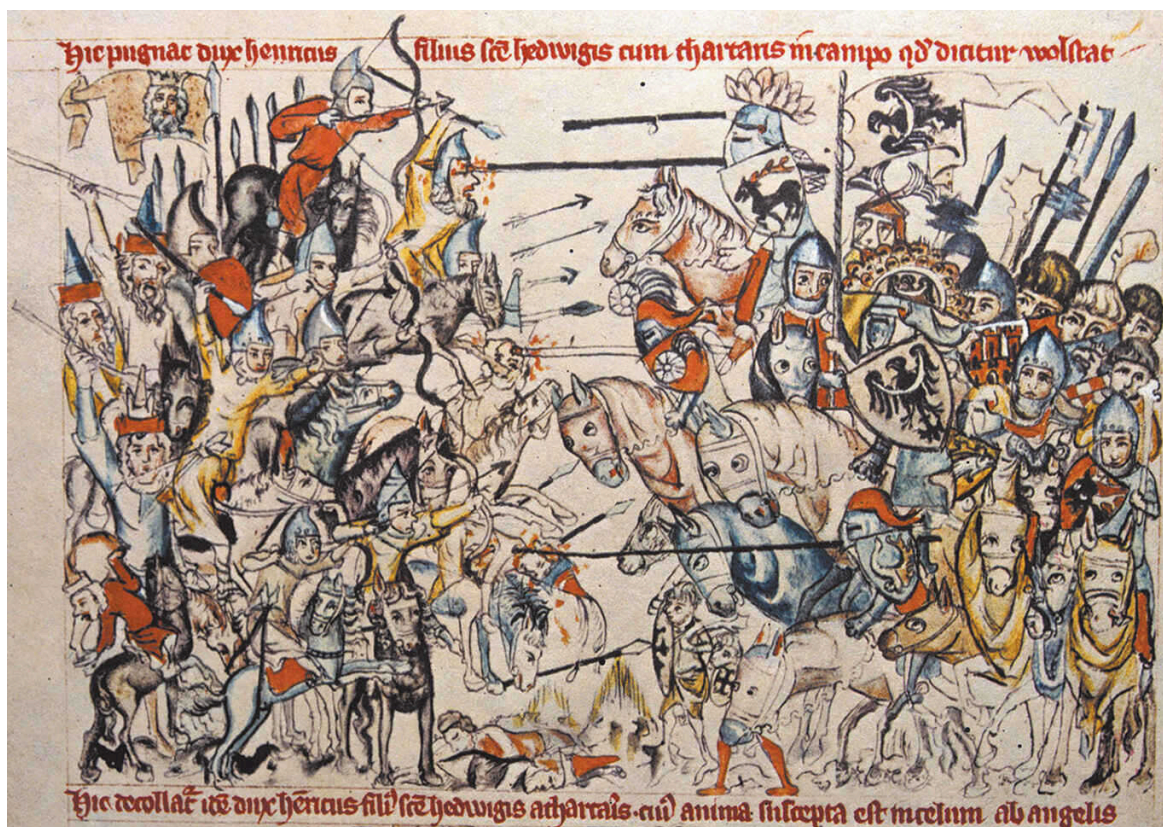 Hic pugnat dux henricus filius scē hedwigis cum thartaris in campo qd̄ dicitur wolstat
Hic decollat᷑ idē dux hēricus filiꝰ scē hedwigis a thartaris · cuiꝰ anima suscepta est in celum ab angelis